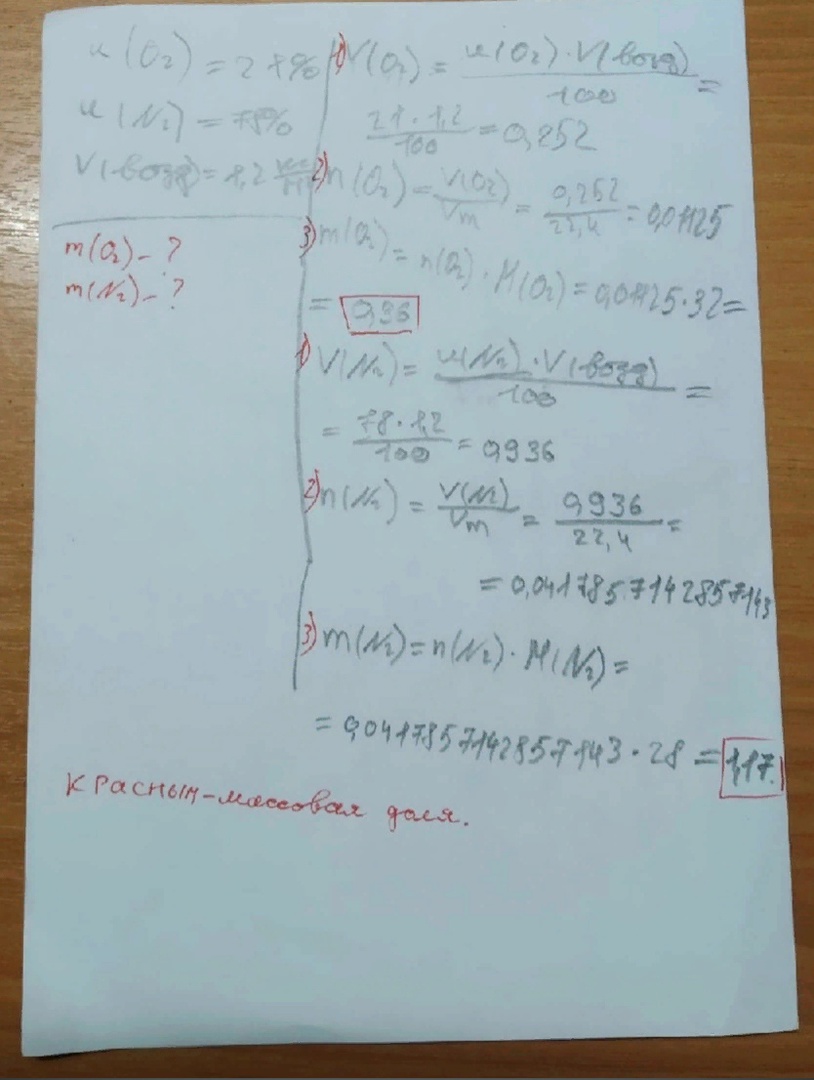 φ(O₂) = 21%
φ(N₂) = 78%
V(возд) = 1,2
m(O₂) - ?
m(N₂) - ?
1) V(O₂) = φ(O₂) · V(возд) / 100 =
21 · 1,2 / 100 = 0,252
2) n(O₂) = V(O₂) / Vm = 0,252 / 22,4 = 0,01125
3) m(O₂) = n(O₂) · M(O₂) = 0,01125 · 32 =
= 0,36
1) V(N₂) = φ(N₂) · V(возд) / 100 =
= 78 · 1,2 / 100 = 0,936
2) n(N₂) = V(N₂) / Vm = 0,936 / 22,4 =
= 0,0417857142857143
3) m(N₂) = n(N₂) · M(N₂) =
= 0,0417857142857143 · 28 = 1,17.
Красным - массовая доля.